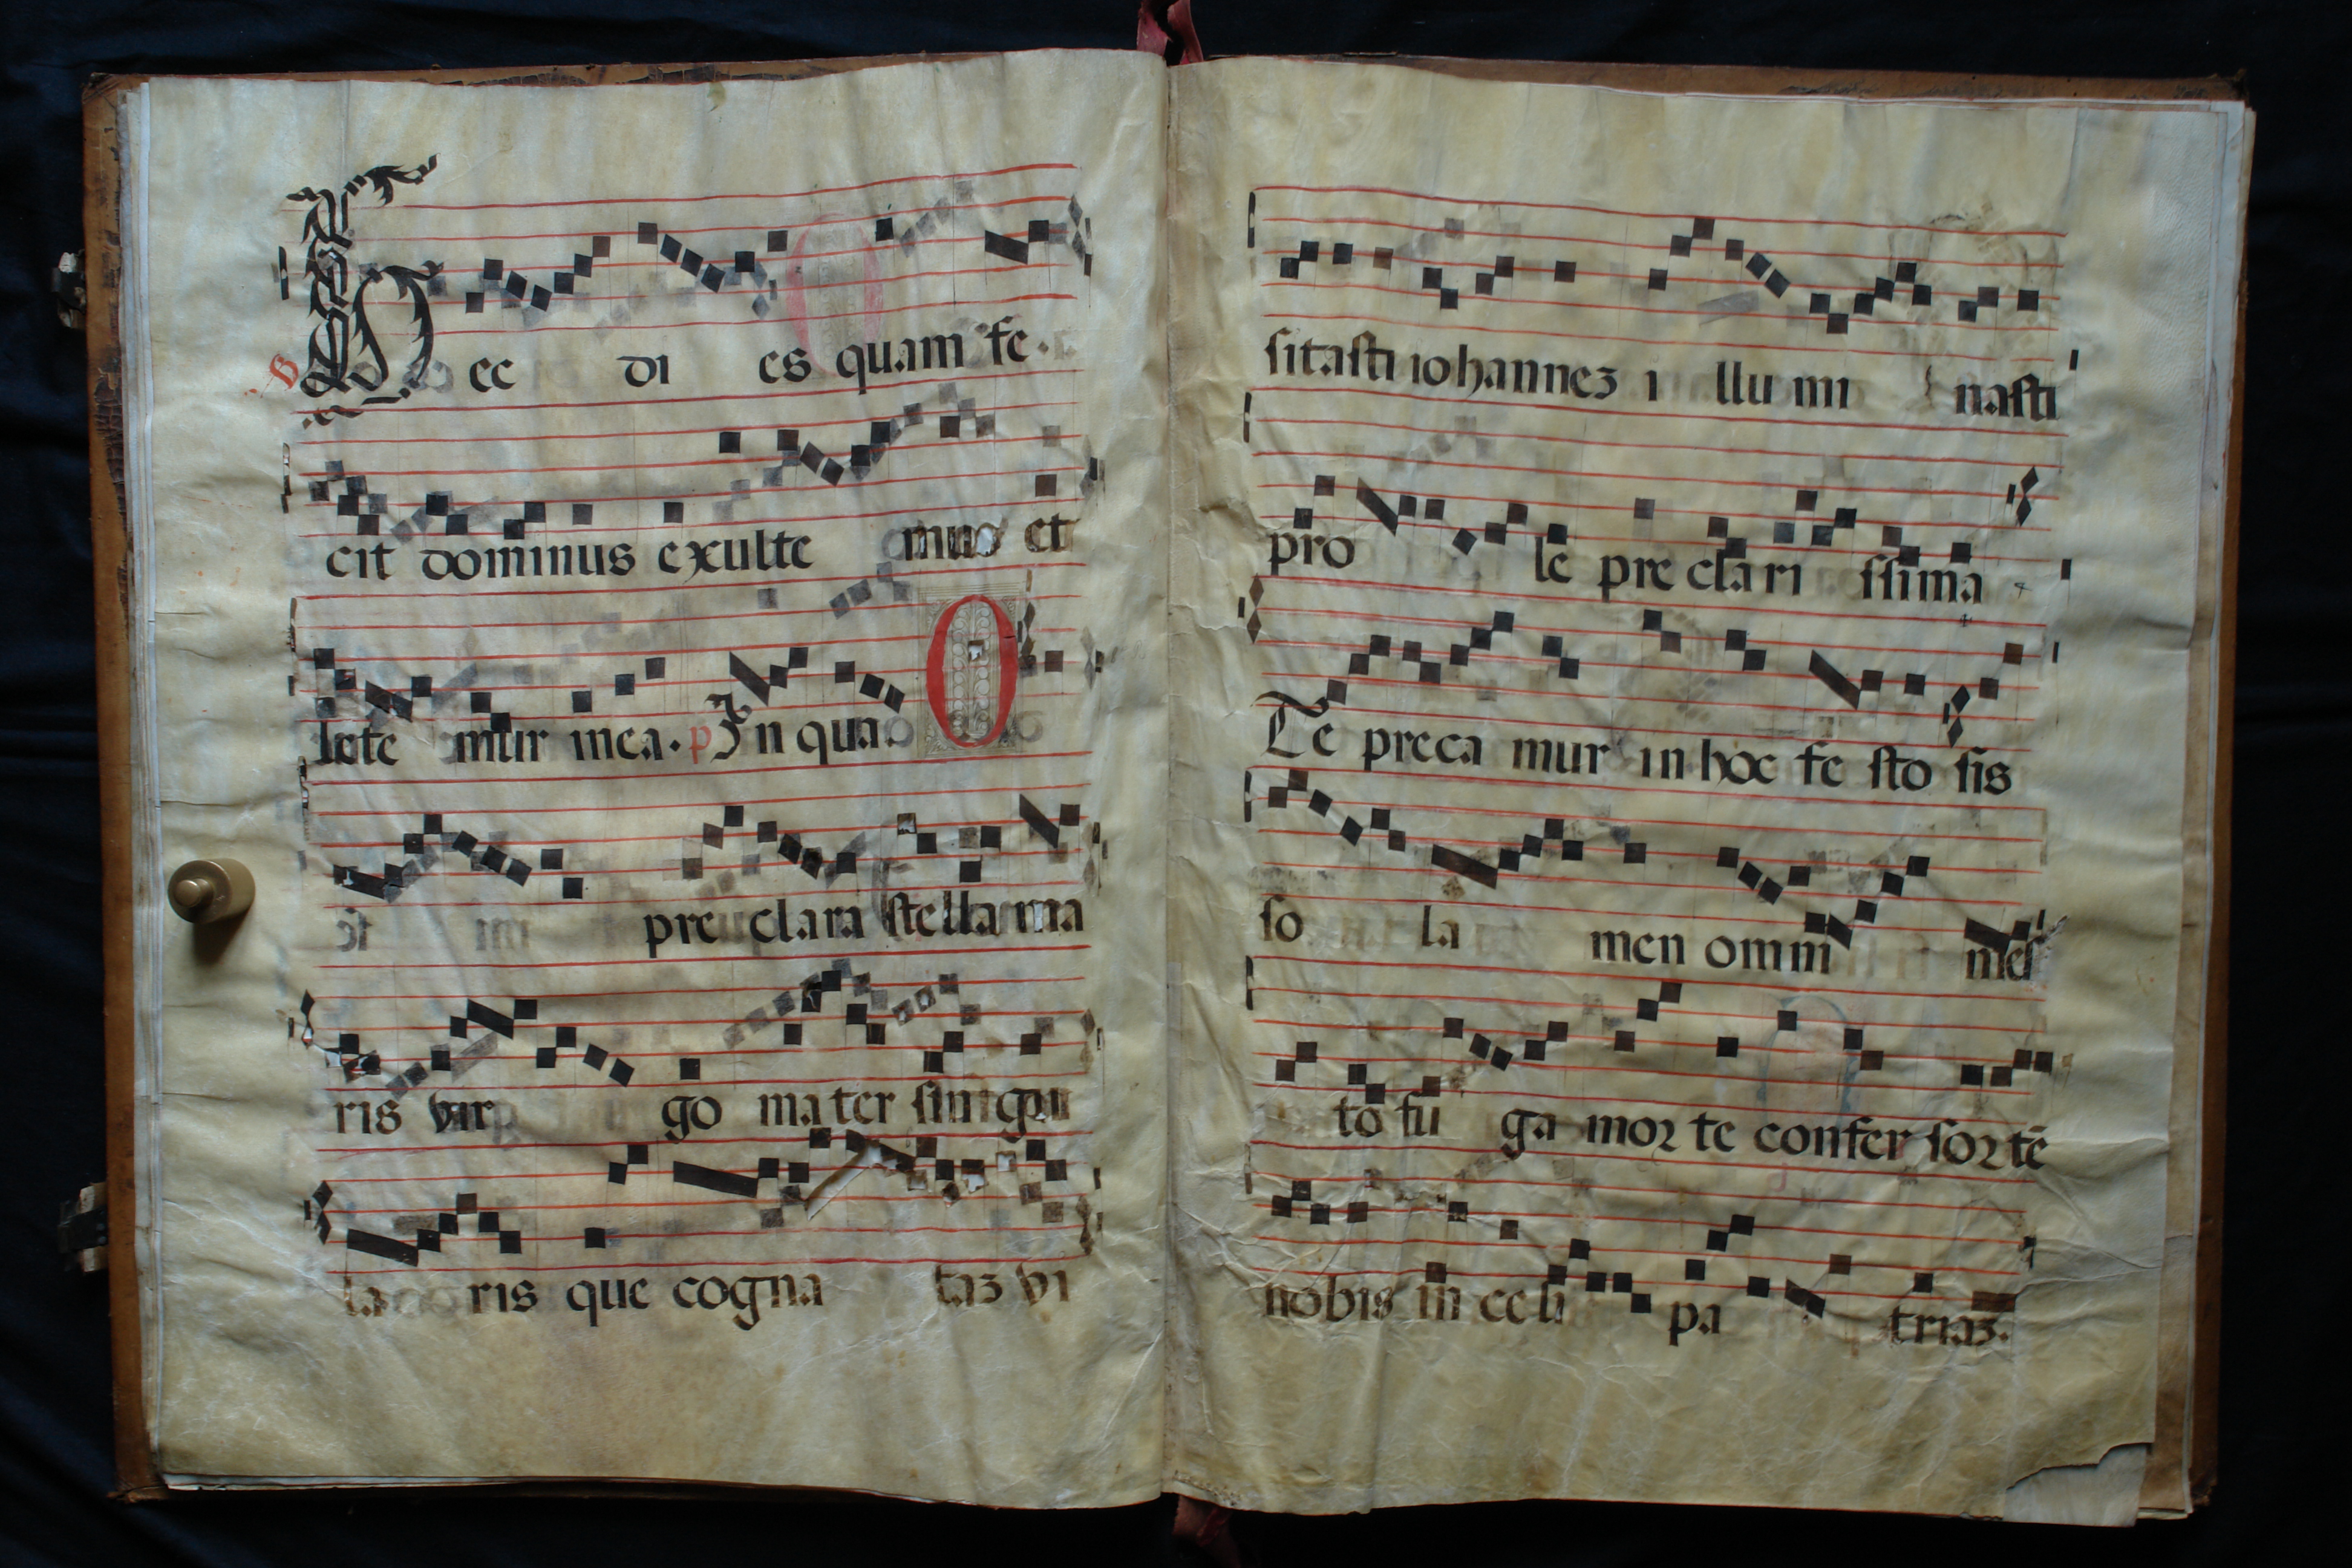 V Hec di es quam fe.
cit dominus exulte mus et
lete mur in ea. p̃s In qua. O
pre clara stella ma
ris vir go ma ter singu
la ris que cogna taz vi
sitasti iohannez i llu mi nasti
pro le pre clari ssima
Te preca mur in hoc fe sto sis
so la men omni mes
to fu ga mor te confer sortē
nobis in celi pa triaz.